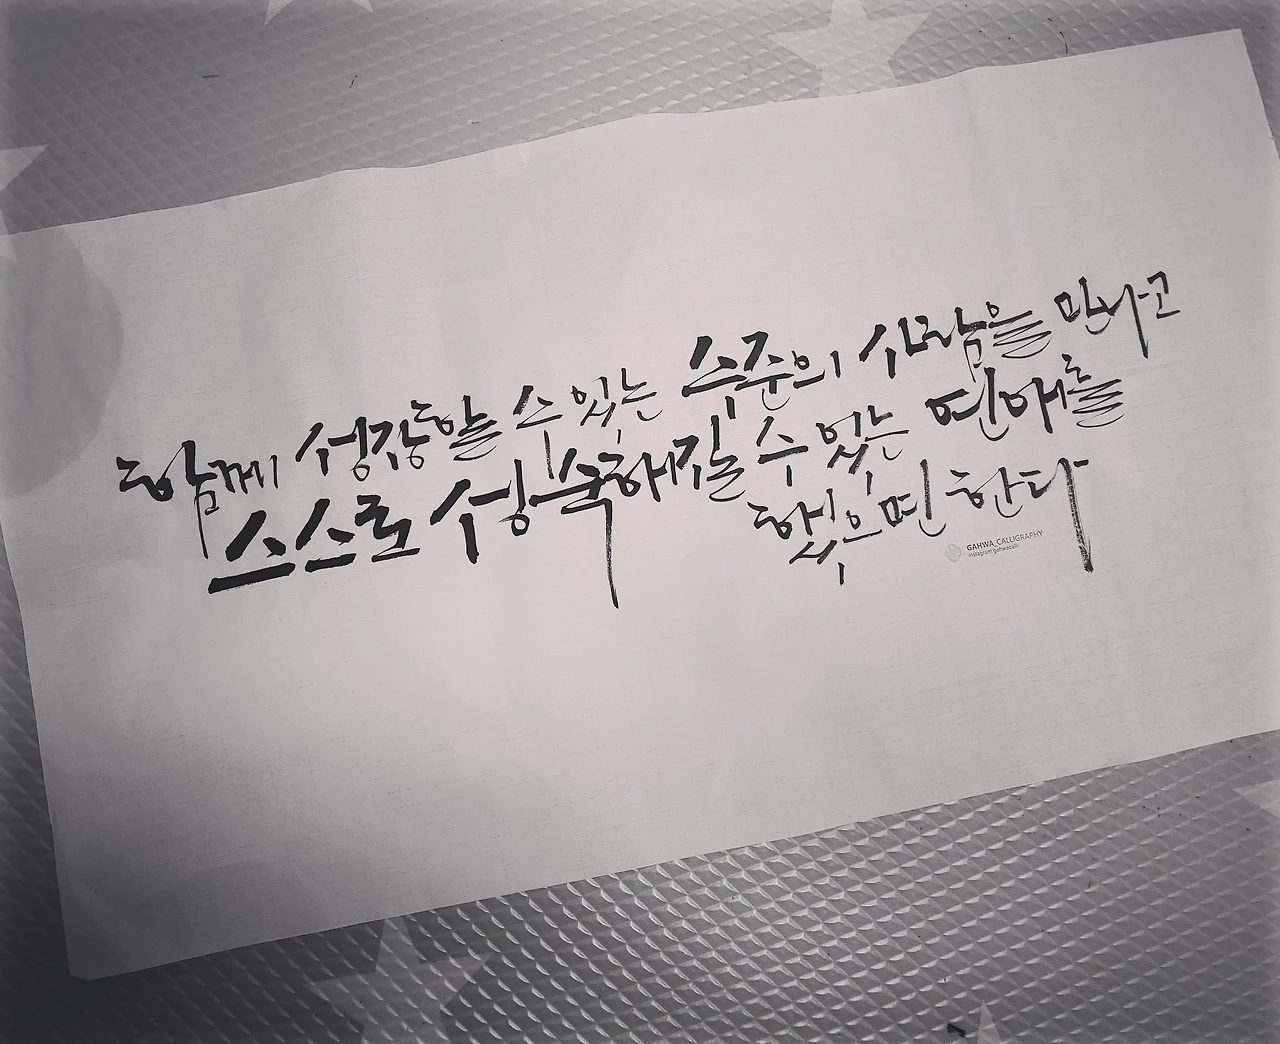 함께 성장할 수 있는 수준의 사람을 만나고
스스로 성숙해질 수 있는 연애를
했으면 한다
GAHWA_CALLIGRAPHY
instagram:gahwacalli